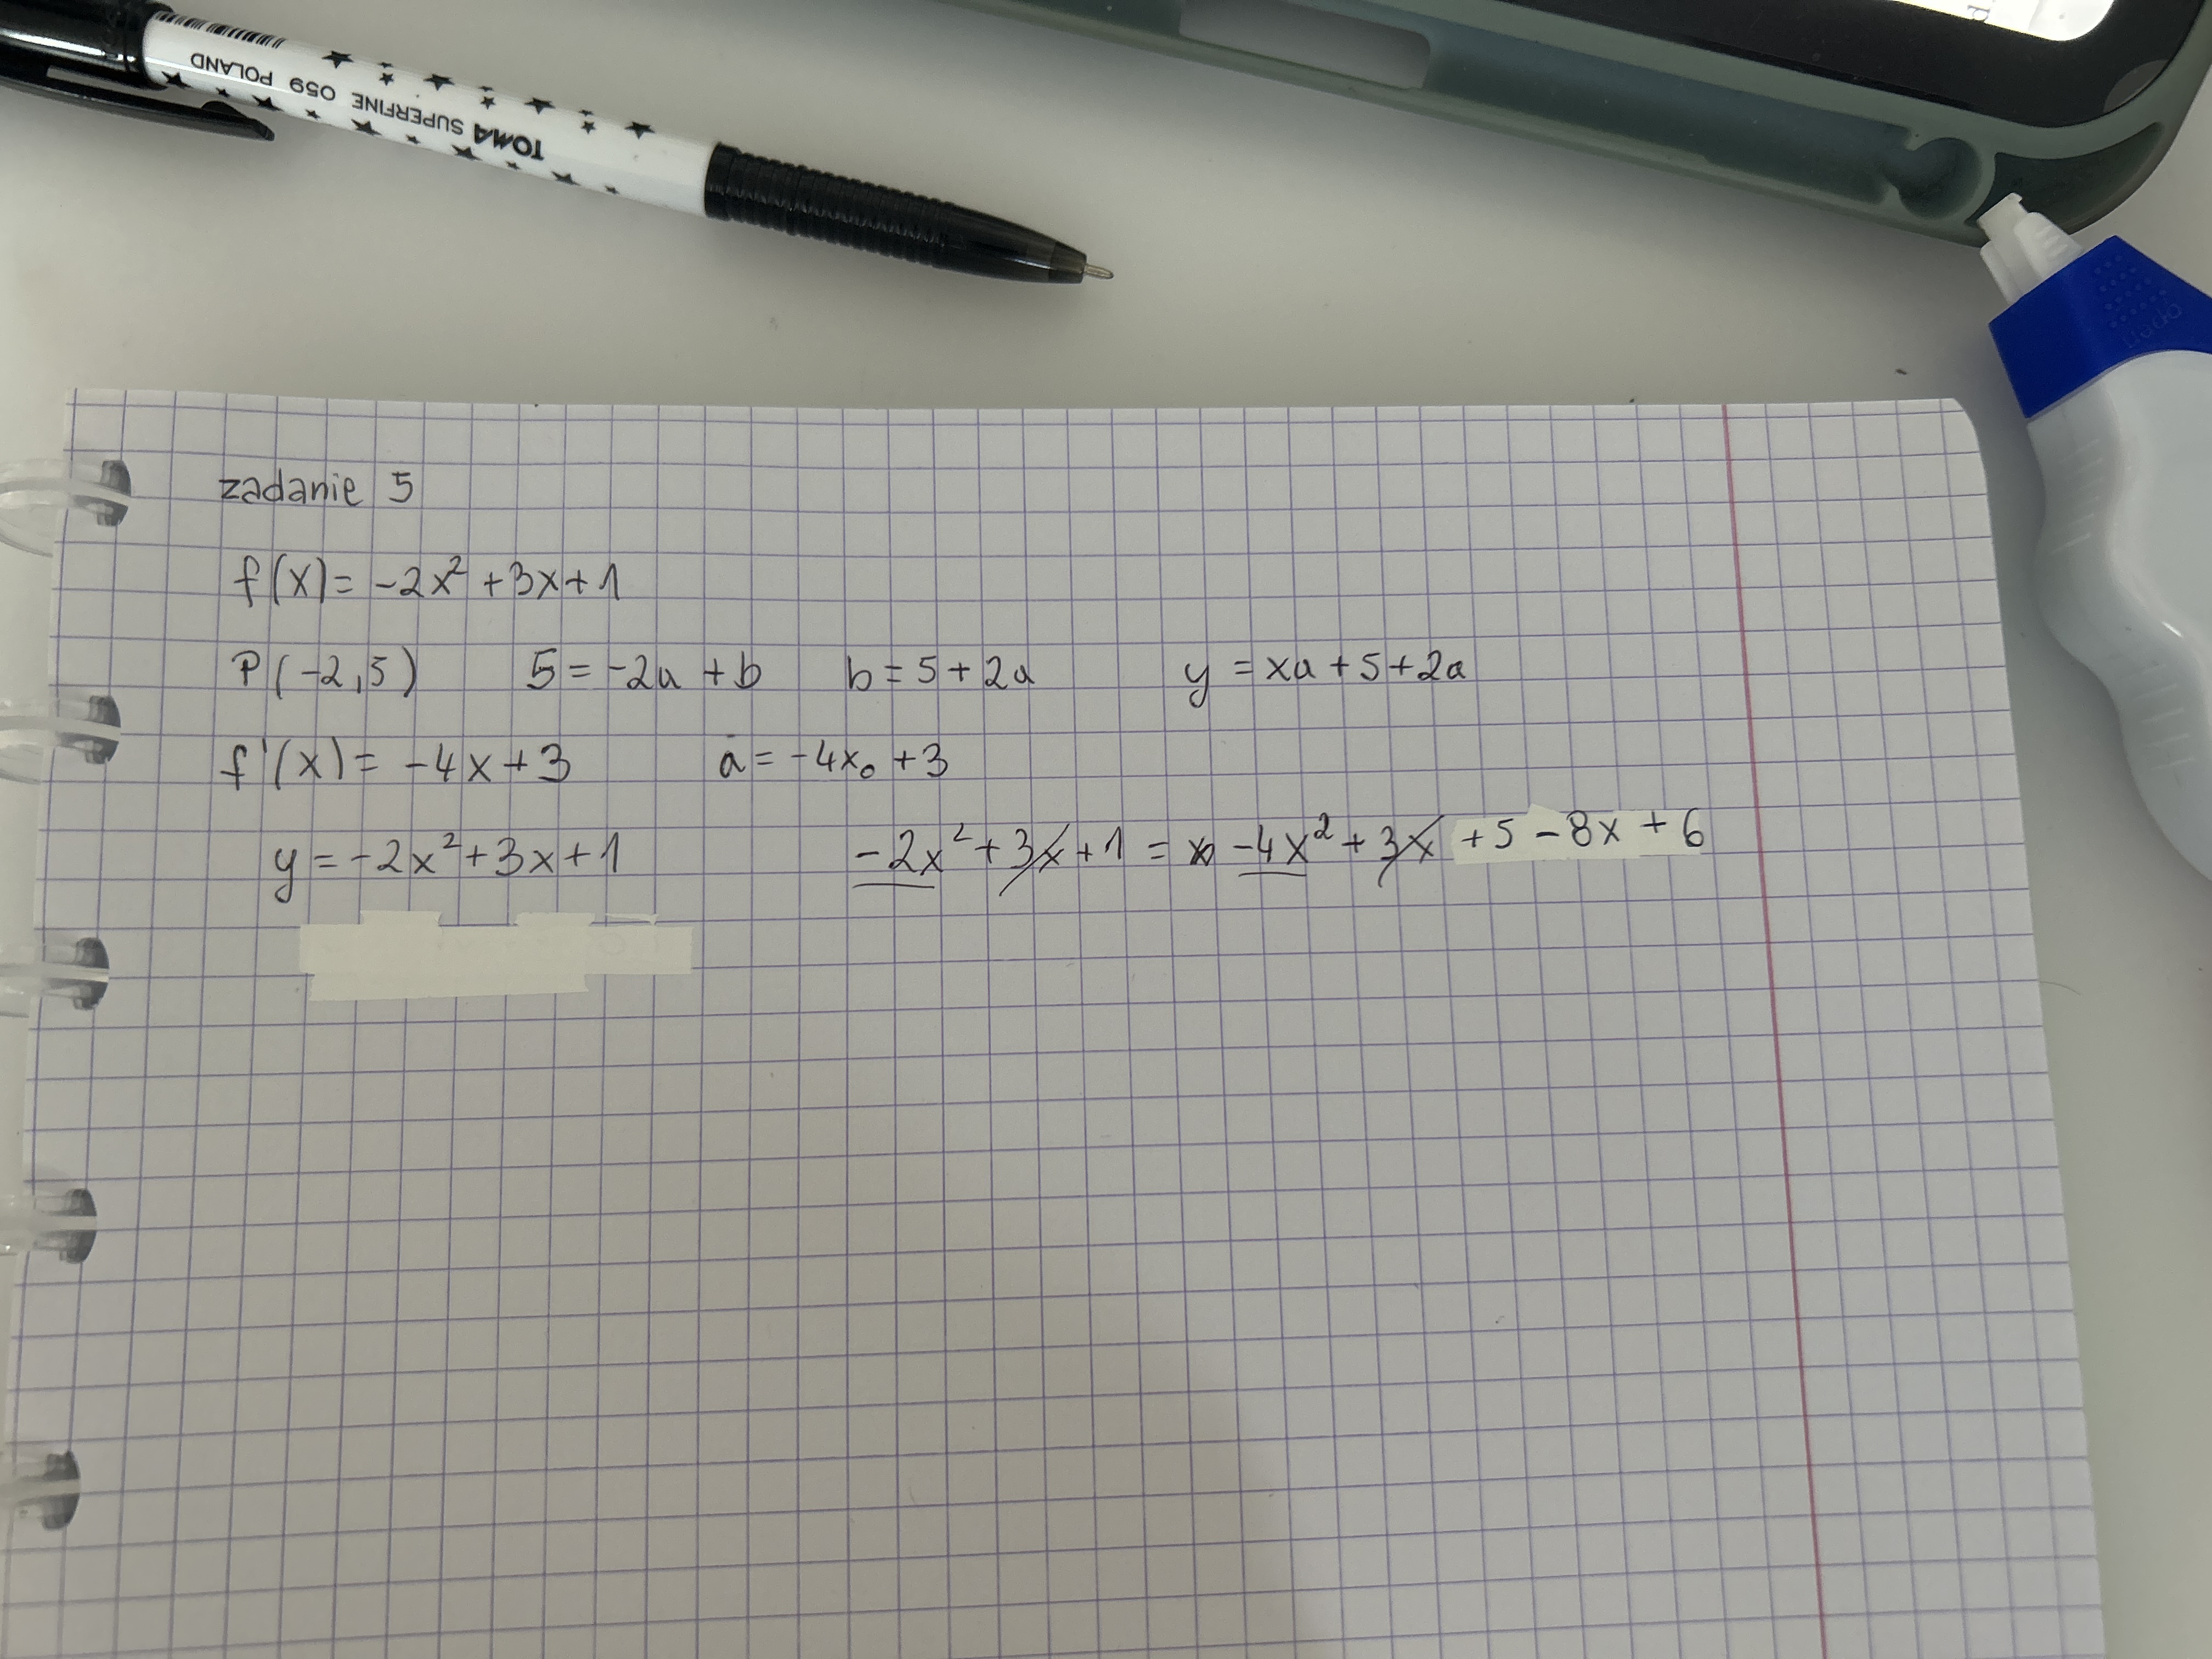 TOMA SUPERFINE 059 POLAND
zadanie 5
f(x) = -2x² + 3x + 1
P(-2,5) 5 = -2a + b b = 5 + 2a y = xa + 5 + 2a
f'(x) = -4x + 3 a = -4x₀ + 3
y = -2x² + 3x + 1 -2x² + 3x + 1 = -4x² + 3x + 5 - 8x + 6